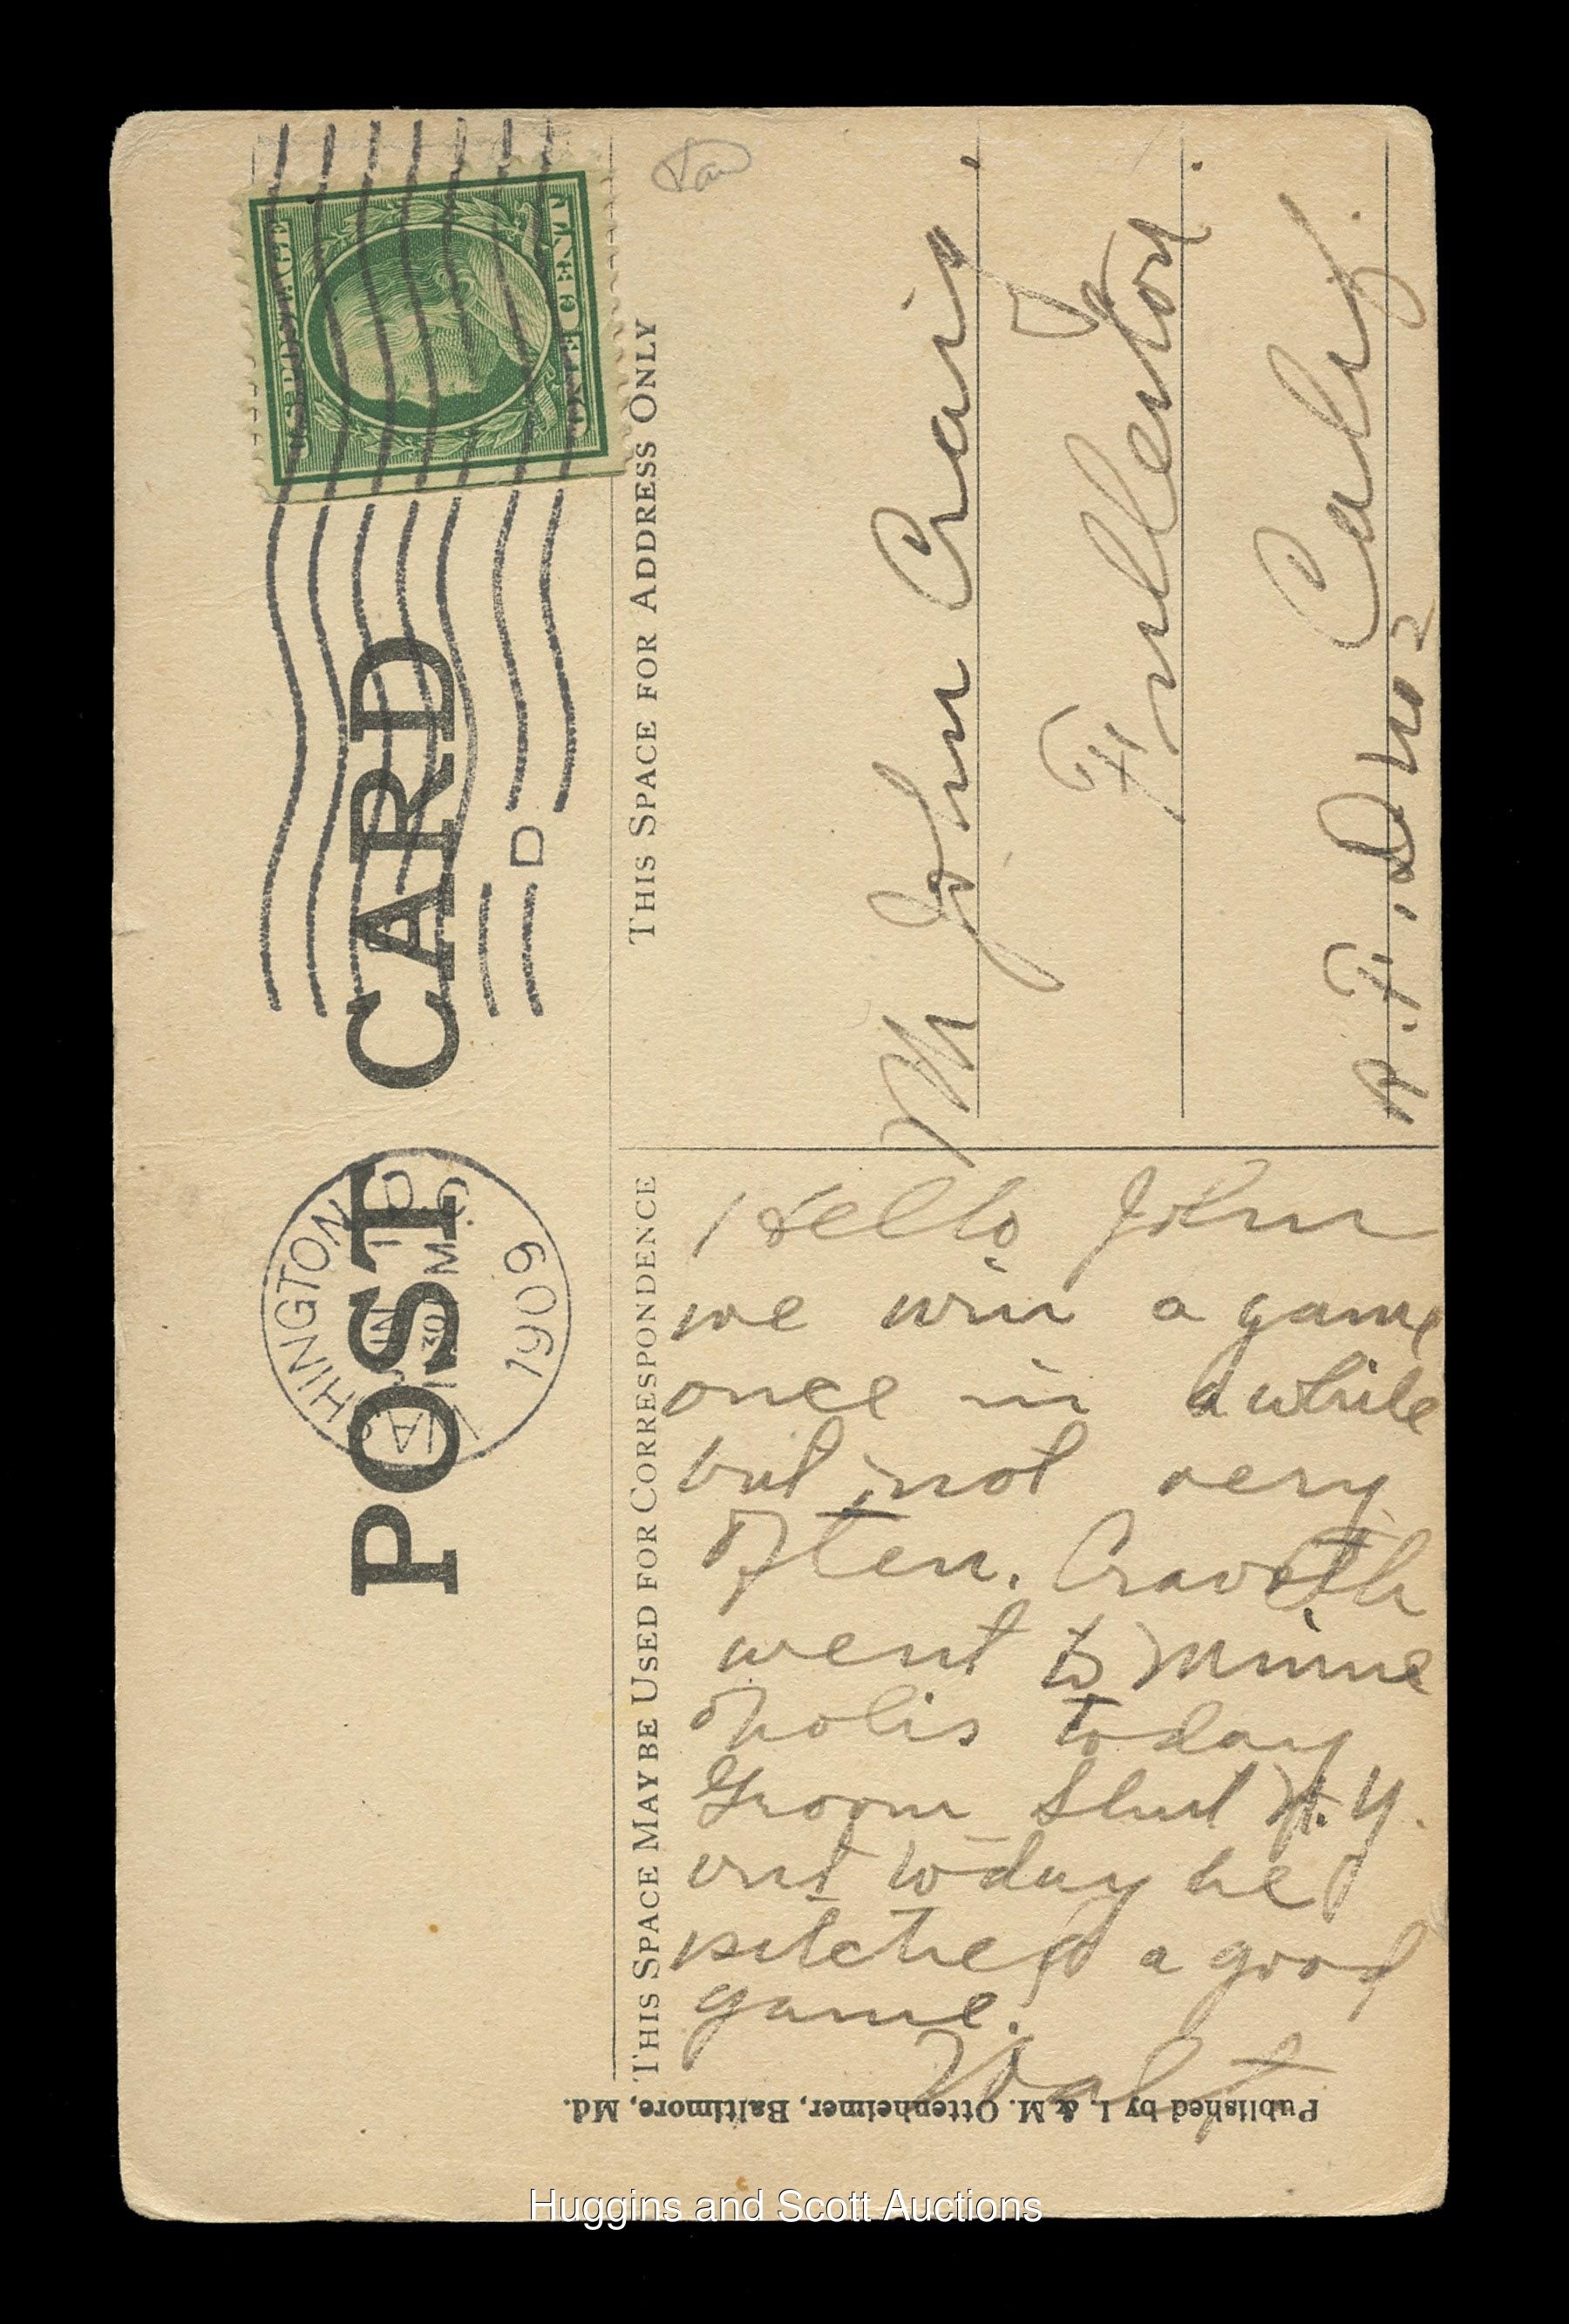 POST CARD
U.S. POSTAGE
ONE CENT
HINGTON
D.C.
JUN
30 M
1909
D
THIS SPACE FOR ADDRESS ONLY
Mr John Craig
Fullerton
Calif.
R.F.D no 2
THIS SPACE MAY BE USED FOR CORRESPONDENCE
Hello John
we win a game
once in a while
but not very
often. Cravath
went to Minne
opolis today
Groom Shut N.Y.
out today he
pitched a good
game.
Walt
Published by I. & M. Ottenheimer, Baltimore, Md.
Huggins and Scott Auctions